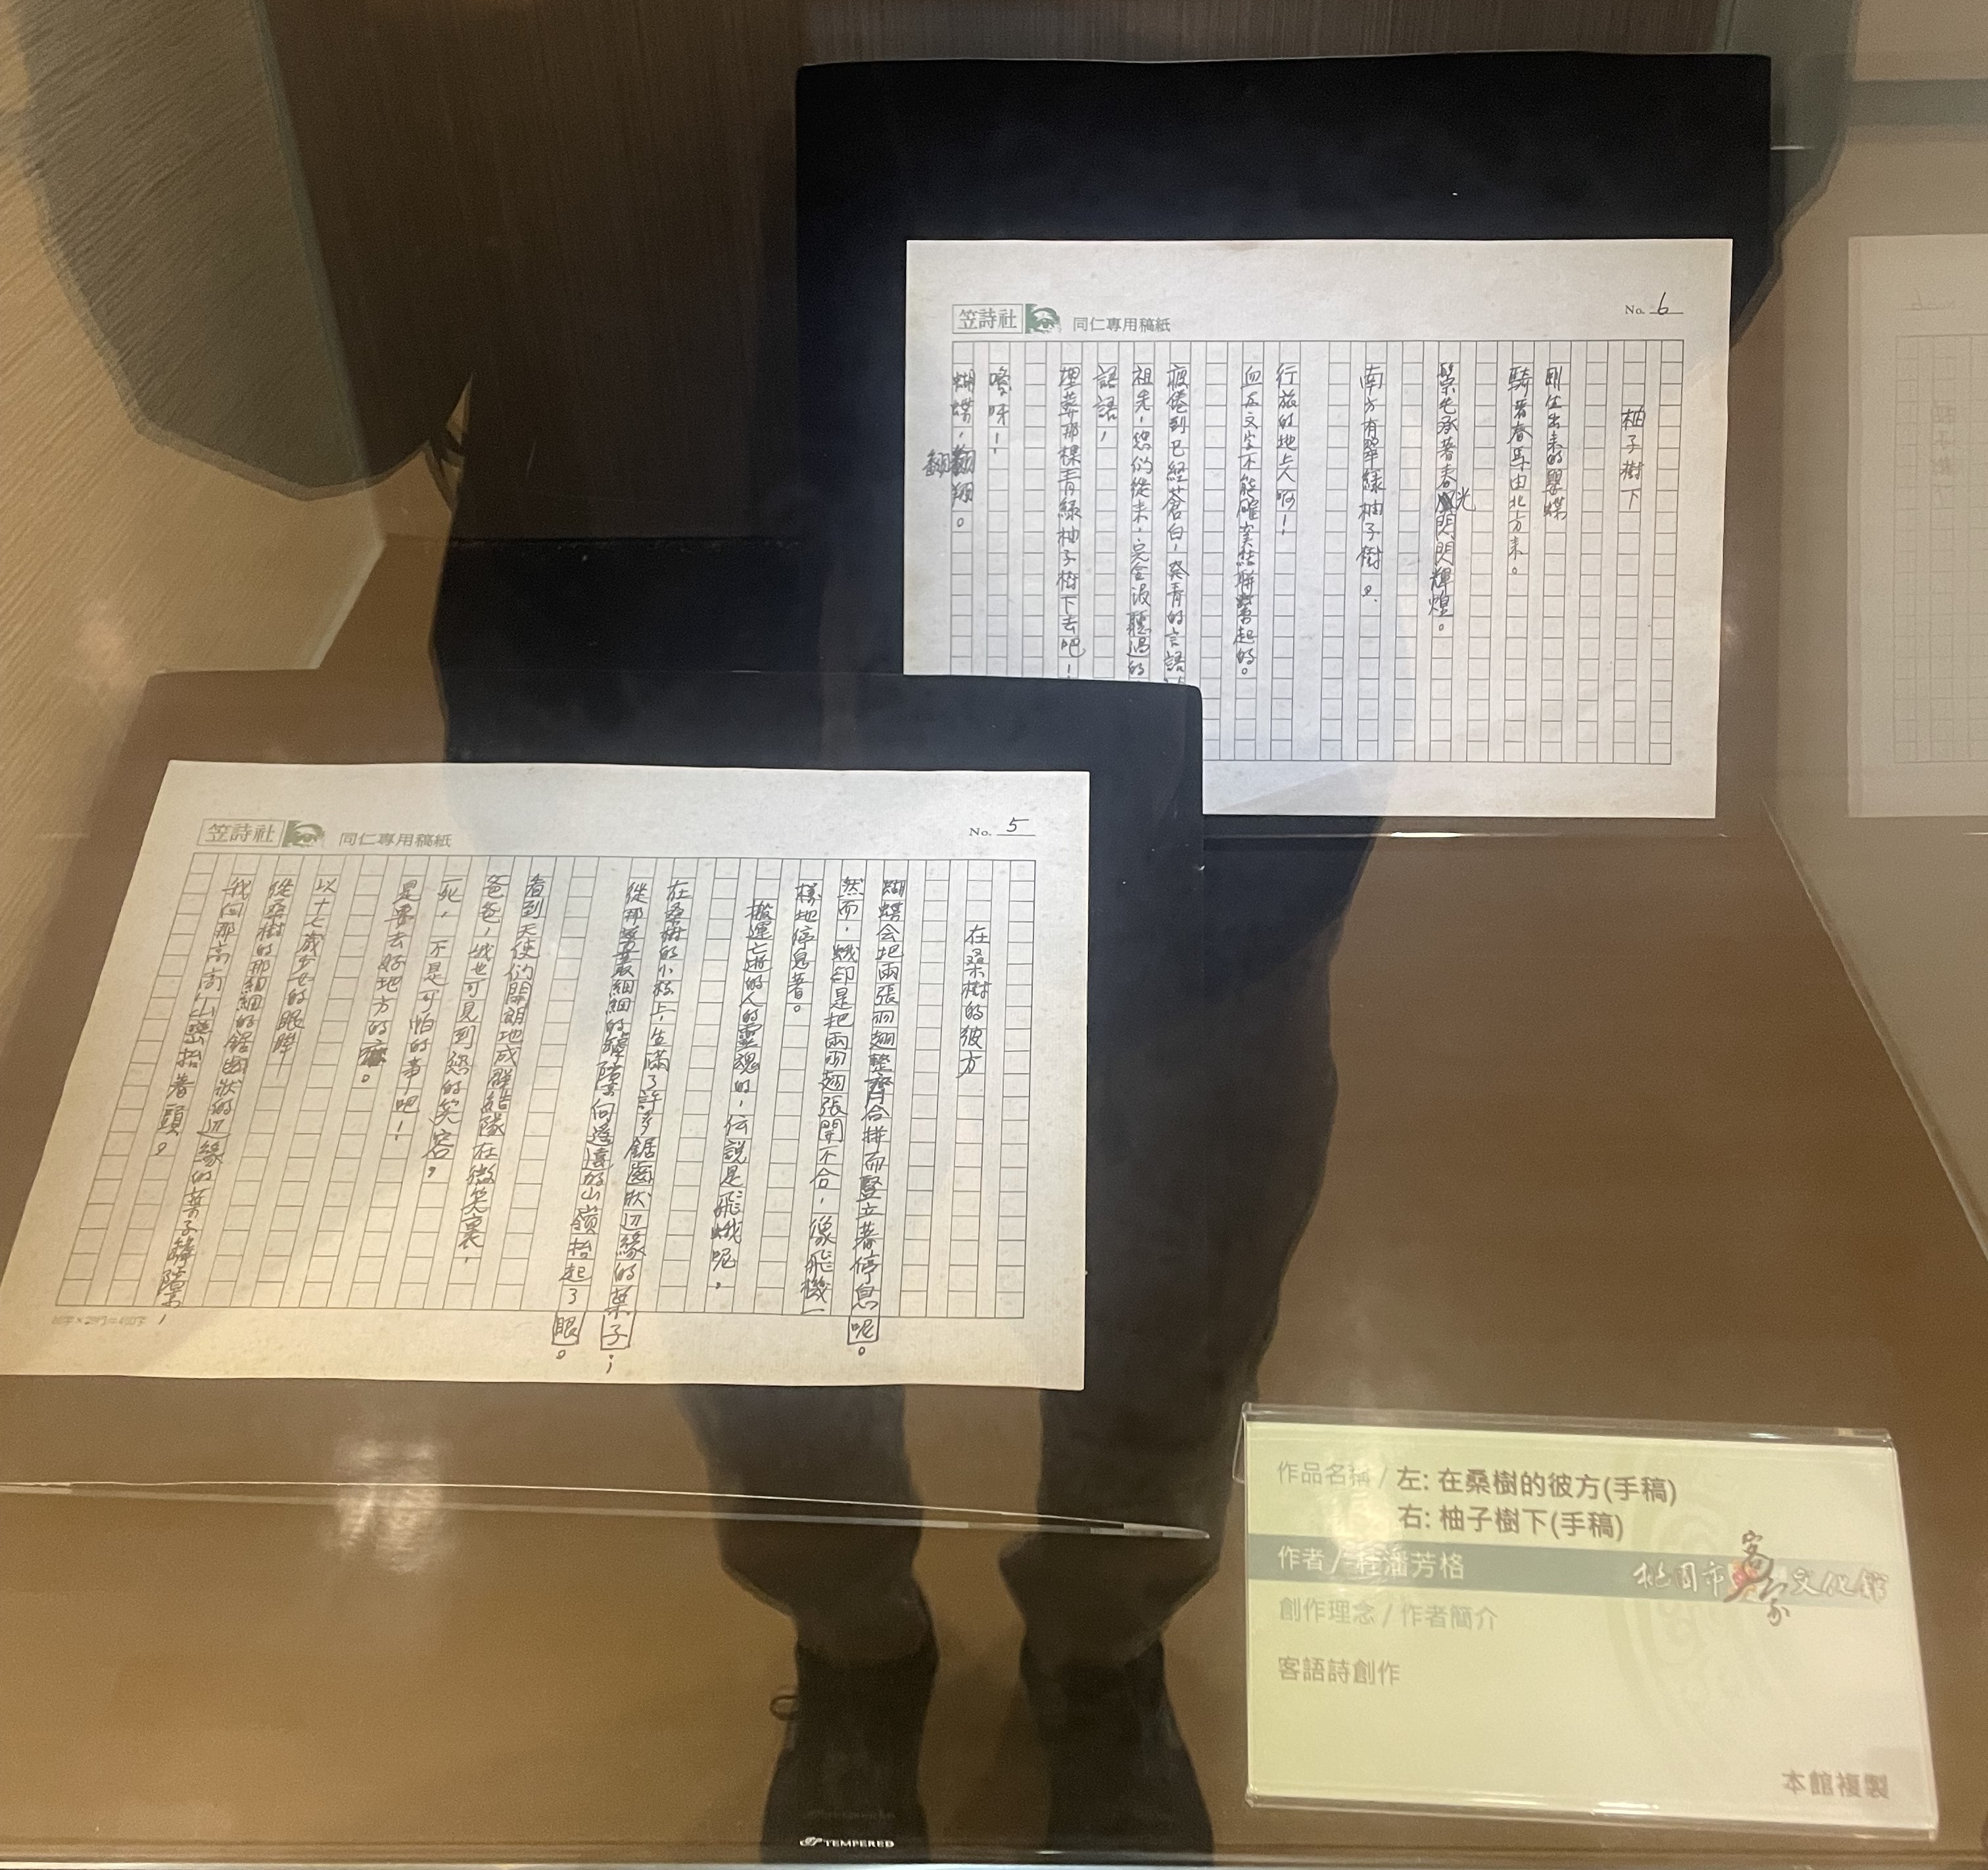 笠詩社 同仁專用稿紙
No. 6
柚子樹下
剛生出來的嬰蝶
騎著春馬由北方來。
鬃毛承著春光閃閃輝煌。
南方有翠綠柚子樹。
行旅的地上人啊!
血和文字不能確實結聯繫起的。
疲倦到已經蒼白,發青的言語
祖先,您們從未,完全沒聽過的
話語,
埋葬那棵青綠柚子樹下去吧!
嗳呀!
蝴蝶,翩翔。
笠詩社 同仁專用稿紙
No. 5
在桑樹的彼方
蝴蝶会把兩張羽翅整齊合拼而豎立著停息呢。
然而,蛾卻是把兩羽翅張開不合,像飛機一
樣地停息著。
搬運亡逝的人的靈魂的,伝說是飛蛾呢。
在桑樹的小枝上,生滿了許多鋸齒狀辺緣的葉子;
從那叢叢細細的罅隙向遙遠的山嶺抬起了眼。
看到天使們開朗地成群結隊在微笑裏,
爸爸,我也可見到您的笑容。
死,不是可怕的事吧!
是要去好地方的。
以十七歲少女的眼眸
從桑樹的那細細的鋸齒狀的辺緣的葉子罅隙,
我向那高高山巒抬著頭。
20字×20行=400字
作品名稱 / 左: 在桑樹的彼方(手稿)
右: 柚子樹下(手稿)
作者 / 杜潘芳格
桃園市客家文化館
創作理念 / 作者簡介
客語詩創作
本館複製
TEMPERED